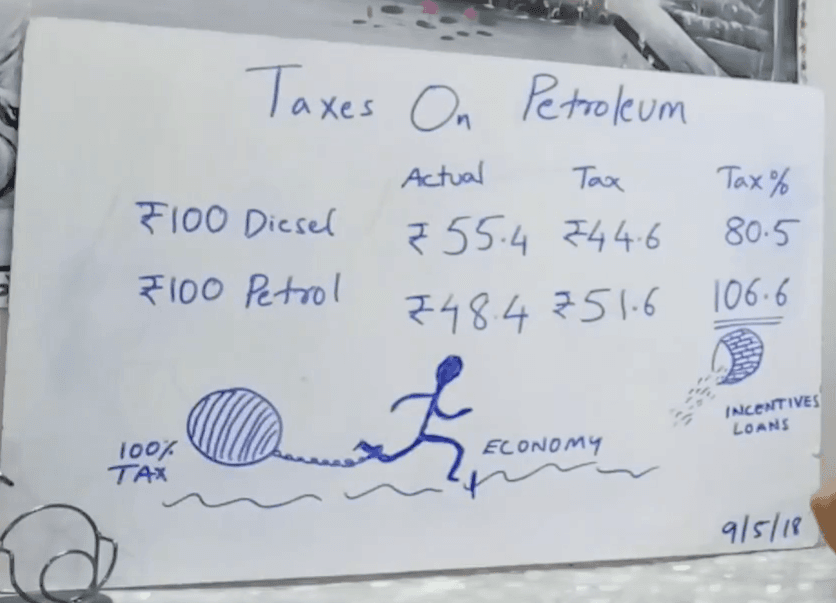 Taxes On Petroleum
Actual Tax Tax%
₹100 Diesel ₹55.4 ₹44.6 80.5
₹100 Petrol ₹48.4 ₹51.6 106.6
INCENTIVES
LOANS
100%
TAX
ECONOMY
9/5/18